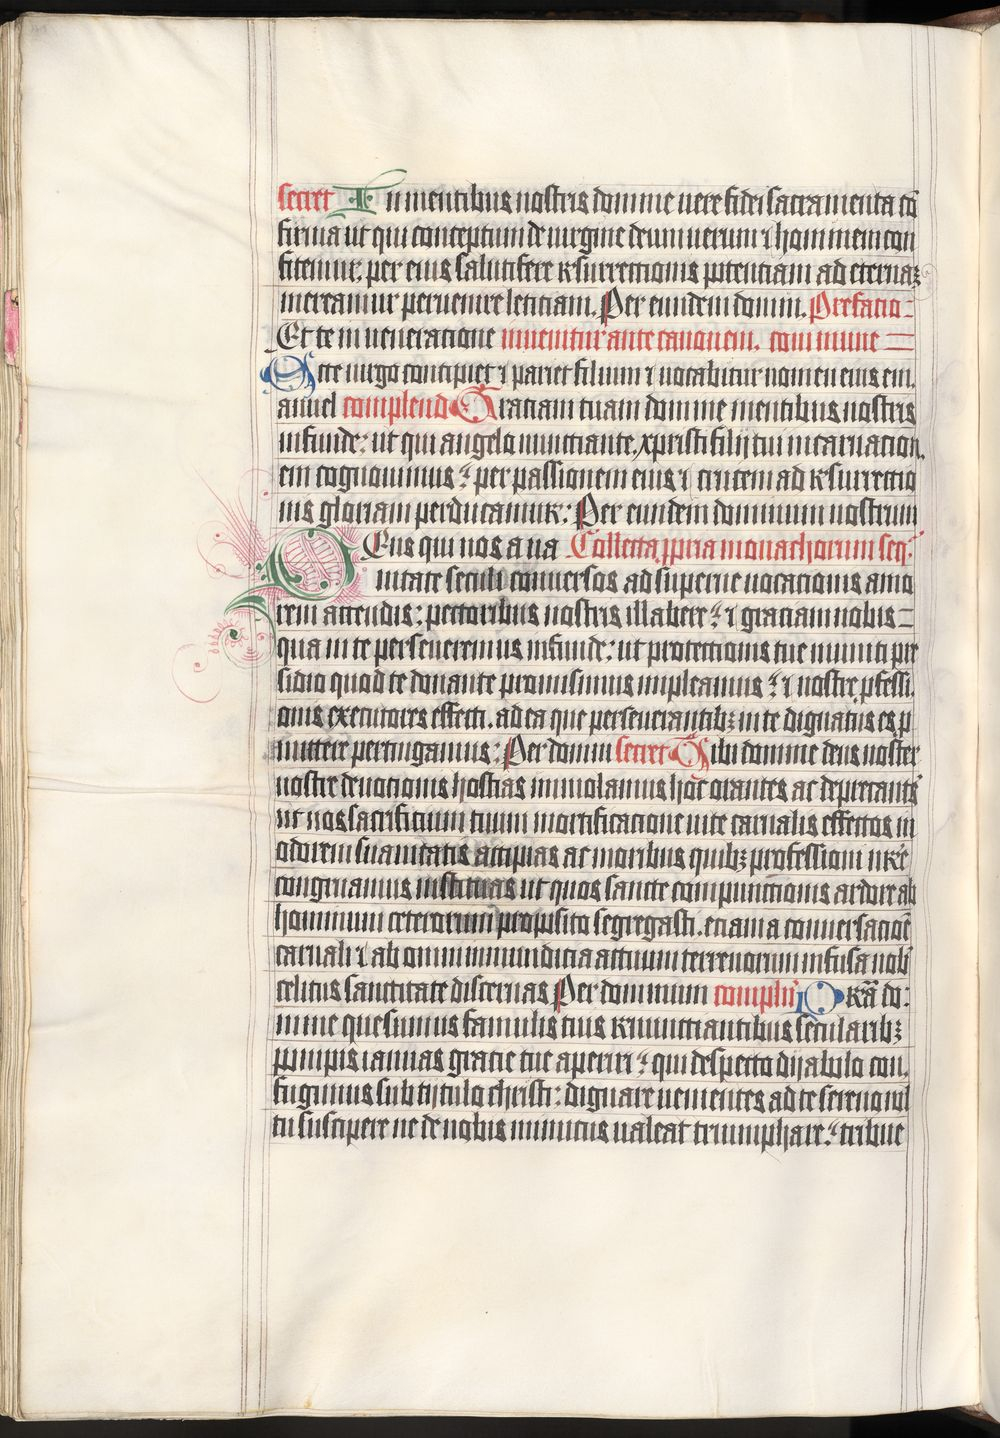 secret In mentibus nostris domine uere fidei sacramenta cō
firma ut qui conceptum de uirgine deum uerum ⁊ hominem con
fitemur, per eius salutifere resurrectionis potentiam ad eternaʒ
mereamur peruenire leticiam. Per eundem domin. Prefacio
Et te in ueneracione inuenitur ante canonem. commune
Ecce uirgo concipiet ⁊ pariet filium ⁊ uocabitur nomen eius em,
anuel complend Graciam tuam domine mentibus nostris
infunde; ut qui angelo nunctiante, xpristi filij tui incarnacion,
em cognouimus ; per passionem eius ⁊ crucem ad resurrectio
nis gloriam perducamur: Per eundem dominum nostrum
Deus qui nos a ua Collecta ꝓpria monachorum seq,
nitate seculi conuersos ad superne uocacionis amo
rem accendis; pectoribus nostris illabere ; ⁊ graciam nobis
qua in te perseueremus infunde; ut protectionis tue muniti pre
sidio quod te donante promisimus impleamus ; ⁊ nostre ꝓfessi,
onis executores effecti, ad ea que perseuerantibʒ in te dignatus es ꝓ
mittere pertingamus: Per domin secret Tibi domine deus noster
nostre deuocionis hostias immolamus hoc orantes ac deprecantes
ut nos sacrificium tuum mortificacione uite carnalis effectos in
odorem suauitatis accipias ac moribus quibʒ professioni nr̄e
congruamus instituas ut quos sancte compunctionis ardore ab
hominum ceterorum proposito segregasti, etiam a conuersacioē
carnali ⁊ ab omni inmundicia actuum terrenorum infusa nob
celitus sanctitate discernas Per dominum complen̄ Oram̄ do:
mine quesumus famulis tuis renunctiantibus secularibʒ
pompis ianuas gracie tue aperiri ; qui despecto dijabolo con,
fugimus sub tijtulo christi: dignare uenientes ad te sereno uul
tu suscipere ne de nobis inimicus ualeat triumphare ; tribue